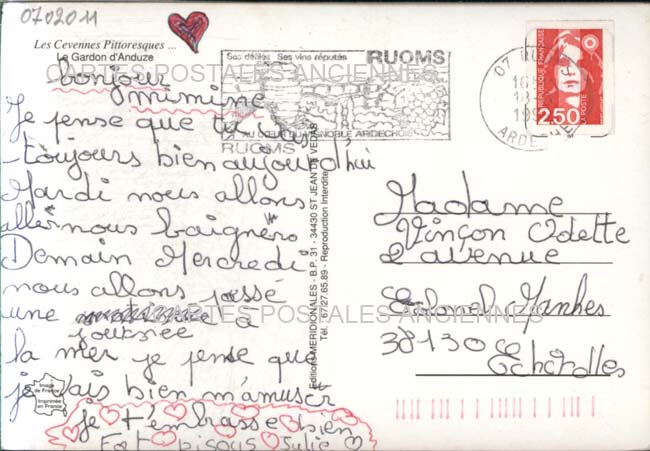 070201M
Les Cevennes Pittoresques ...
Le Gardon d'Anduze
bonjour
mimine
Je pense que tu vas
toujours bien aujourd'hui
Mardi nous allons
aller nous baigners
Demain Mercredi
nous allons passé
une
journée à
la mer je pense que
je vais bien m'amuser
je t'embrasse bien
Fort bisous Julie
Image de France
Imprimée en France
Editions MERIDIONALES - B.P. 31 - 34430 ST JEAN DE VEDAS
Tél. 67/27.65.89 - Reproduction Interdite
Ses défilés Ses vins réputés
RUOMS
AU COEUR DU VIGNOBLE ARDECHOIS
RUOMS
07
ARDECHE
REPUBLIQUE FRANÇAISE
2,50
Madame
Vinçon Odette
2 avenue
Colonel Manhes
38130
Echirolles
CARTES POSTALES ANCIENNES
CARTES POSTALES ANCIENNES